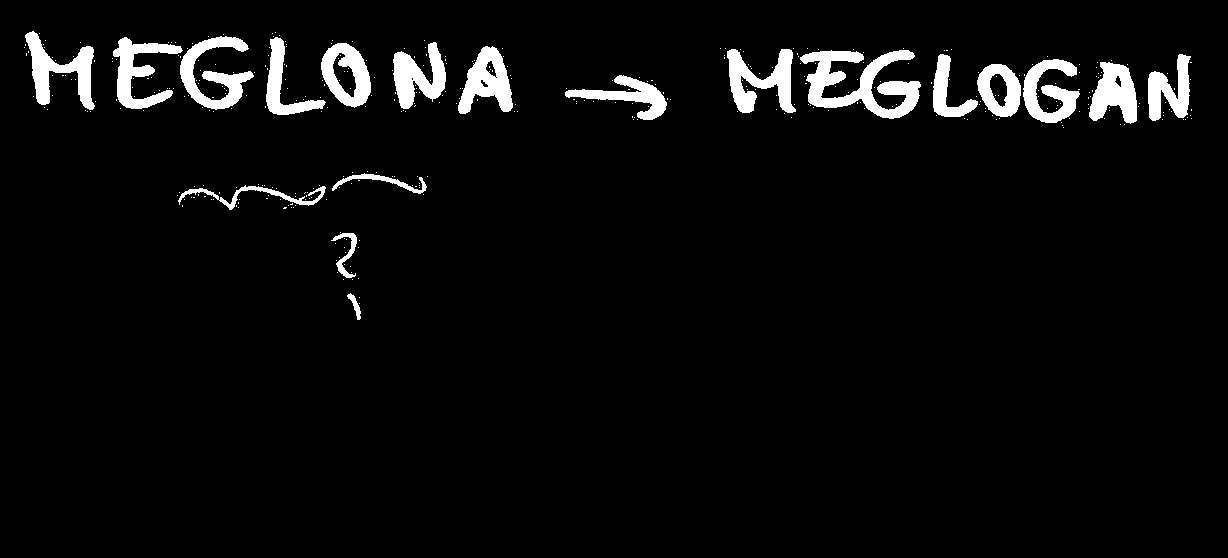 MEGLONA → MEGLOGAN
?